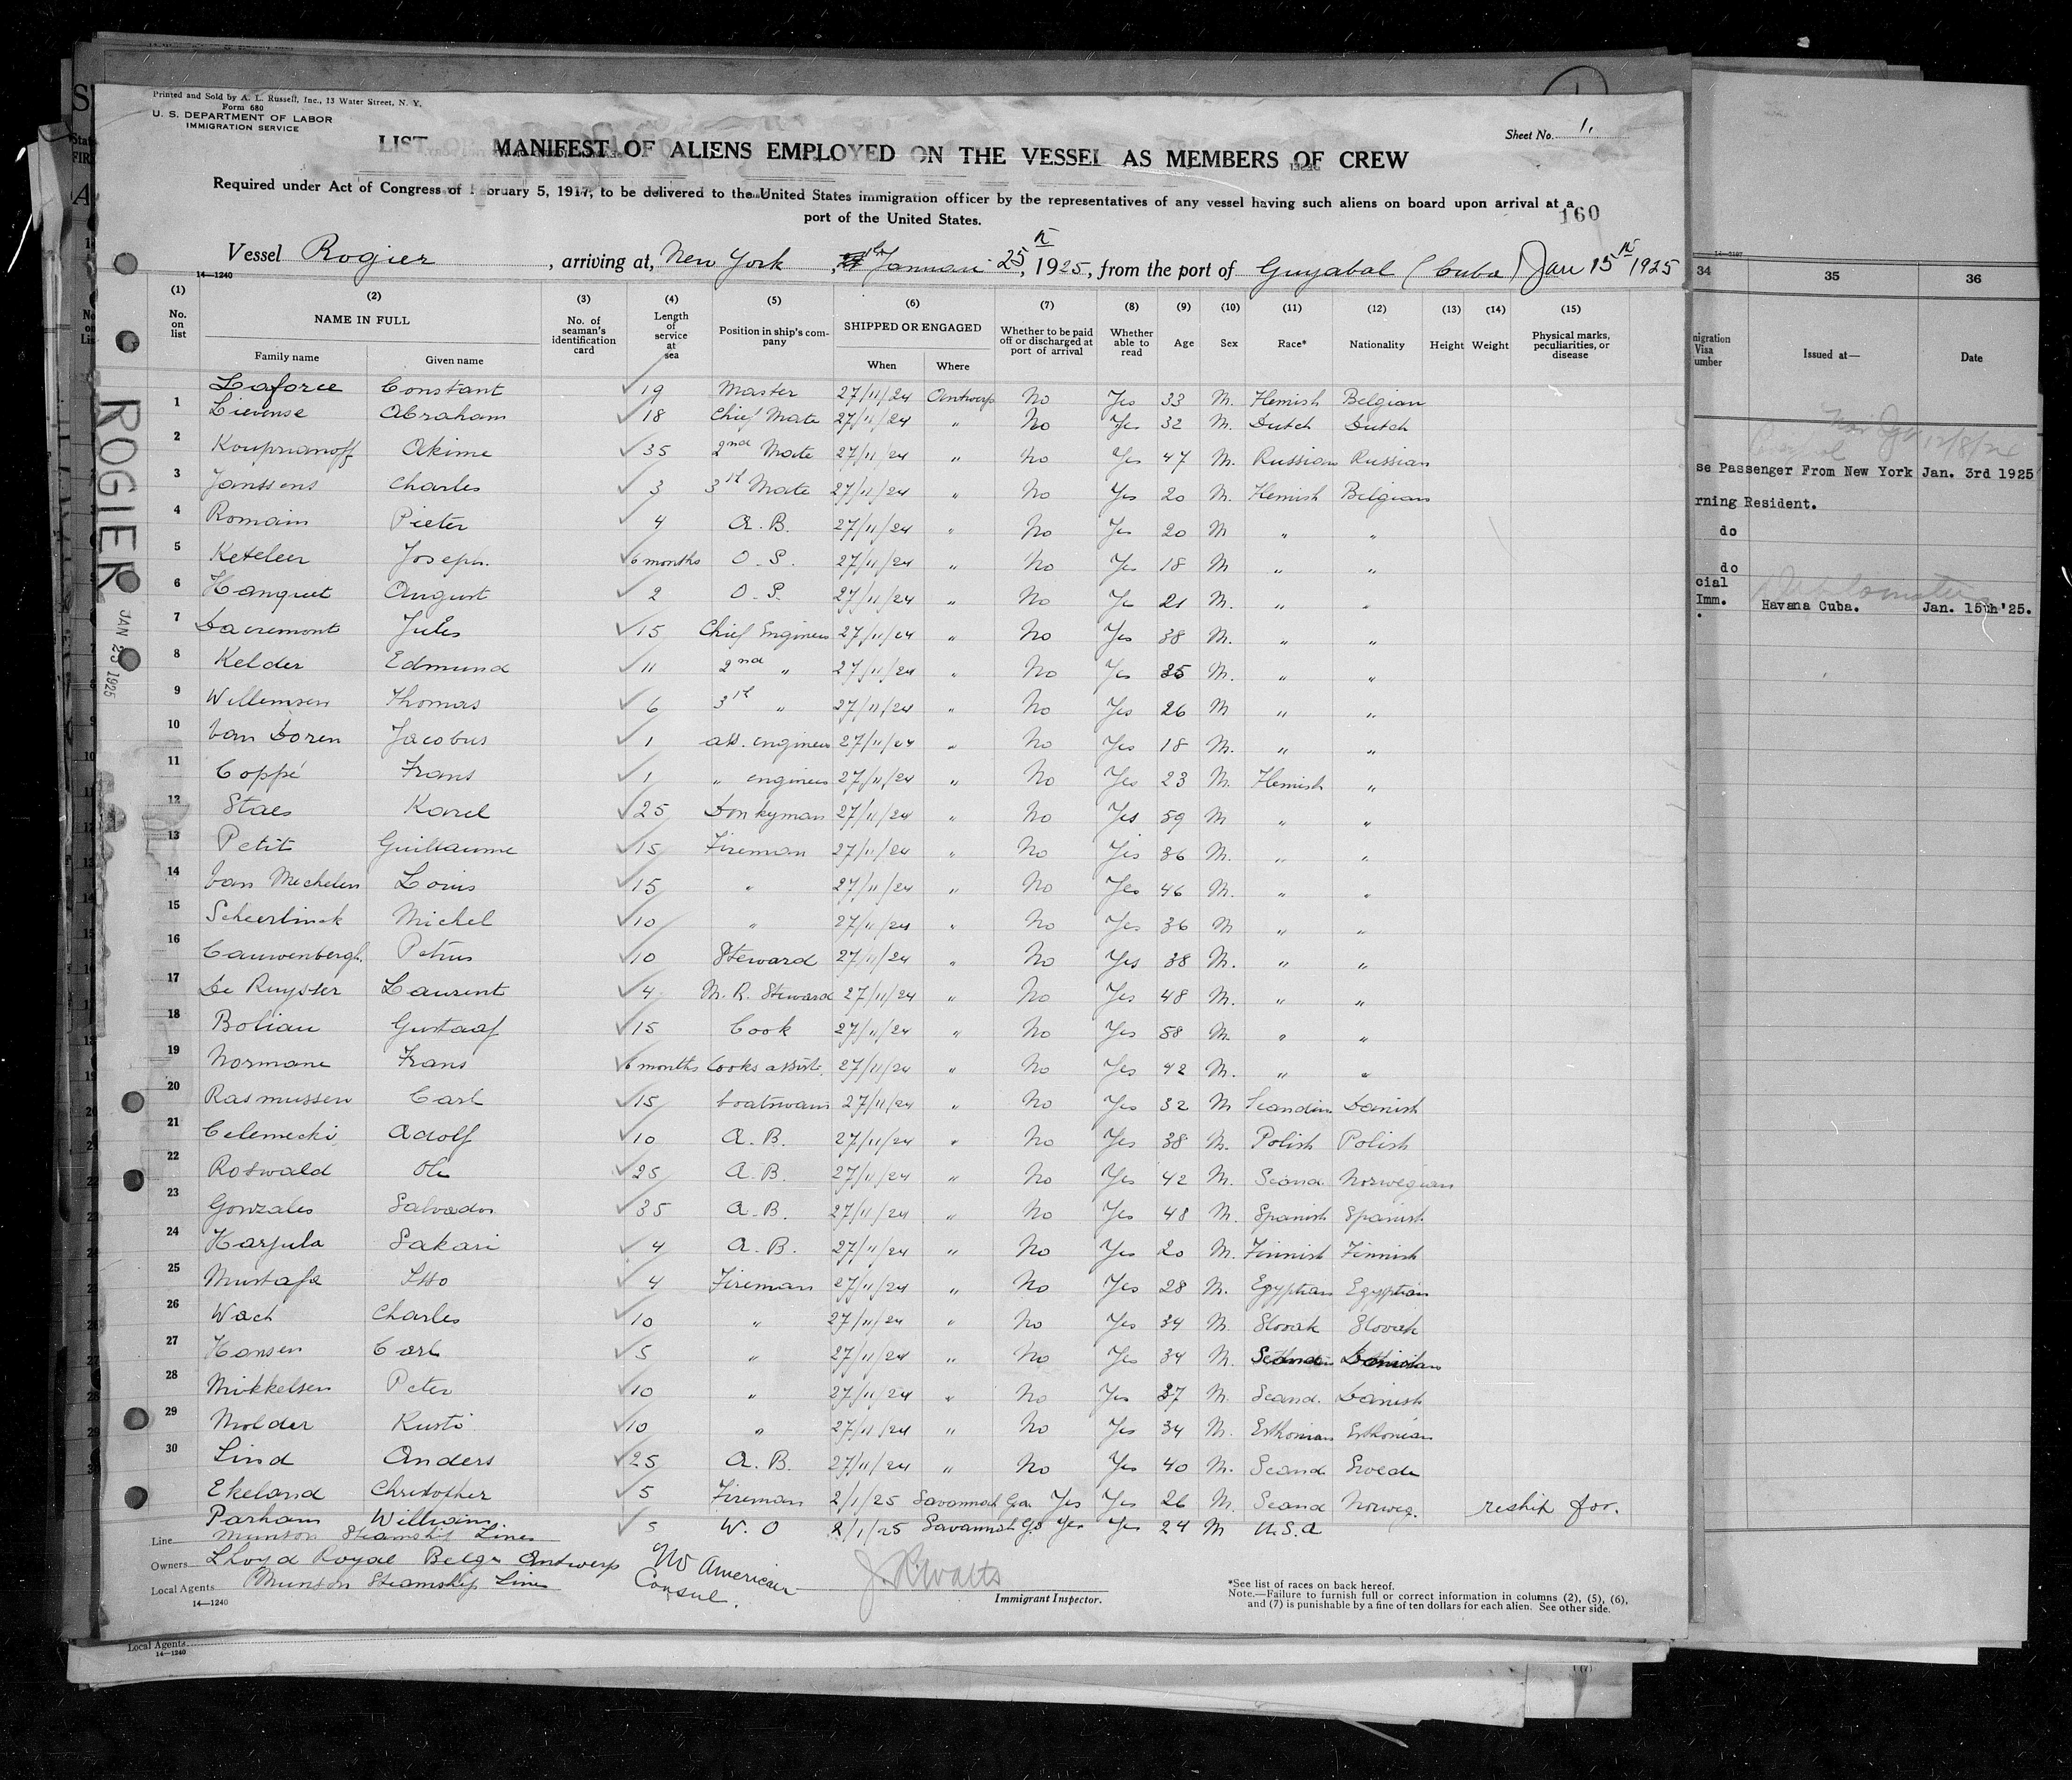 Printed and Sold by A. L. Russell, Inc., 13 Water Street, N. Y.
Form 680
U. S. DEPARTMENT OF LABOR
IMMIGRATION SERVICE
Sheet No. 1.
LIST MANIFEST OF ALIENS EMPLOYED ON THE VESSEL AS MEMBERS OF CREW
Required under Act of Congress of February 5, 1917, to be delivered to the United States immigration officer by the representatives of any vessel having such aliens on board upon arrival at a
port of the United States.
160
Vessel Rogier, arriving at, New York, Januari 25th, 1925, from the port of Guyabal (Cuba) Jan 15th 1925
14—1240
(1) (2) (3) (4) (5) (6) (7) (8) (9) (10) (11) (12) (13) (14) (15)
No. on list NAME IN FULL Family name Given name No. of seaman's identification card Length of service at sea Position in ship's company SHIPPED OR ENGAGED When Where Whether to be paid off or discharged at port of arrival Whether able to read Age Sex Race* Nationality Height Weight Physical marks, peculiarities, or disease
Laforce Constant 19 Master 27/11/24 Antwerp No Yes 33 M. Flemish Belgian
1 Lievense Abraham 18 Chief Mate 27/11/24 " No Yes 32 M. Dutch Dutch
2 Kouprianoff Akime 35 2nd Mate 27/11/24 " No Yes 47 M. Russian Russian
3 Janssens Charles 3 3th Mate 27/11/24 " No Yes 20 M. Flemish Belgian
4 Romain Pieter 4 A. B. 27/11/24 " No Yes 20 M " "
5 Keteleer Joseph. 6 months O. S. 27/11/24 " No Yes 18 M " "
6 Hanquet August 2 O. S. 27/11/24 " No Ye 21 M. " "
7 Dacremont Jules 15 Chief Engineer 27/11/24 " No Yes 38 M. " "
8 Kelder Edmund 11 2nd " 27/11/24 " No Yes 35 M. " "
9 Willemsen Thomas 6 3th " 27/11/24 " No Yes 26 M " "
10 Van Doren Jacobus 1 ass. engineer 27/11/24 " No Yes 18 M. " "
11 Coppé Frans 1 " engineer 27/11/24 " No Yes 23 M. Flemish "
12 Staes Karel 25 Donkyman 27/11/24 " No Yes 59 M " "
13 Petit Guillaume 15 Fireman 27/11/24 " No Yes 36 M. " "
14 Van Mechelen Louis 15 " 27/11/24 " No Yes 46 M. " "
15 Scheerlinck Michel 10 " 27/11/24 " No Yes 36 M " "
16 Cauwenbergh. Petrus 10 Steward 27/11/24 " No Yes 38 M. " "
17 De Ruyster Laurent 4 M. R. Steward 27/11/24 " No Yes 48 M. " "
18 Boliau Gustaaf 15 Cook 27/11/24 " No Yes 58 M. " "
19 Normane Frans 6 months Cooks assist. 27/11/24 " No Yes 42 M. " "
20 Rasmussen Carl 15 boatswain 27/11/24 " No Yes 32 M Scandin Danish
21 Celemecki Adolf 10 A. B. 27/11/24 " No Yes 38 M. Polish Polish
22 Roswald Ole 25 A. B. 27/11/24 " No Yes 42 M. Scand. Norwegian
23 Gonzales Salvador 35 A. B. 27/11/24 " No Yes 48 M. Spanish Spanish
24 Harjula Sakari 4 A. B. 27/11/24 " No Yes 20 M. Finnish Finnish
25 Mustafa Isso 4 Fireman 27/11/24 " No Yes 28 M. Egyptian Egyptian
26 Wach Charles 10 " 27/11/24 " No Yes 34 M. Slovak Slovak
27 Hansen Carl 5 " 27/11/24 " No Yes 34 M.
28 Mikkelsen Peter 10 " 27/11/24 " No Yes 37 M. Scand. Danish
29 Molder Kusti 10 " 27/11/24 " No Yes 34 M. Esthonian Esthonian
30 Lind Anders 25 A. B. 27/11/24 " No Yes 40 M. Scand Swede
Ekeland Christopher 5 Fireman 2/1/25 Savannah Ga Yes Yes 26 M. Scand Norweg. reship for.
Parham William 5 W. O 2/1/25 Savannah Ga Yes Yes 24 M U.S.A
Line Munson Steamship Lines
Owners Lloyd Royal Belge Antwerp
Local Agents Munson Steamship Line
14—1240
No American
Consul.
Immigrant Inspector.
*See list of races on back hereof.
Note.—Failure to furnish full or correct information in columns (2), (5), (6),
and (7) is punishable by a fine of ten dollars for each alien. See other side.
ROGIER
JAN 25 1925
14—2107
34 35 36
migration Visa umber Issued at— Date
12/8/24
se Passenger From New York Jan. 3rd 1925
rning Resident.
do
do
cial
Imm. Havana Cuba. Jan. 15th '25.
Local Agents
14—1240